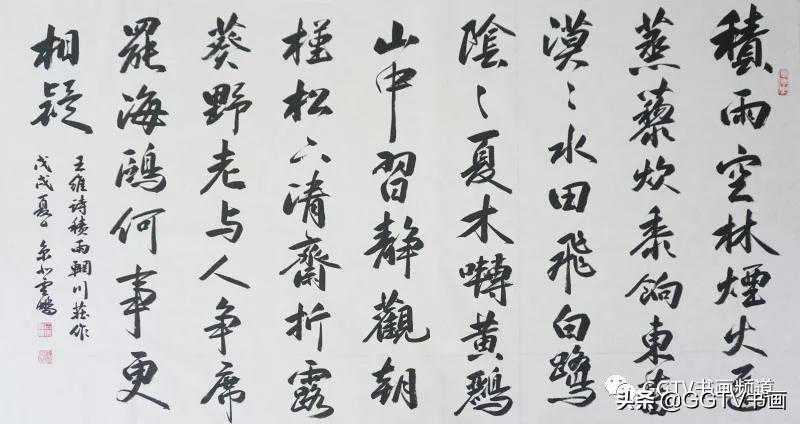 積雨空林煙火遲
蒸藜炊黍餉東菑
漠〻水田飛白鷺
陰〻夏木囀黃鸝
山中習靜觀朝
槿松下清齋折露
葵野老与人争席
罷海鷗何事更
相疑
王維詩積雨輞川莊作
戊戌夏
GGTV书画频道
头条@GGTV书画